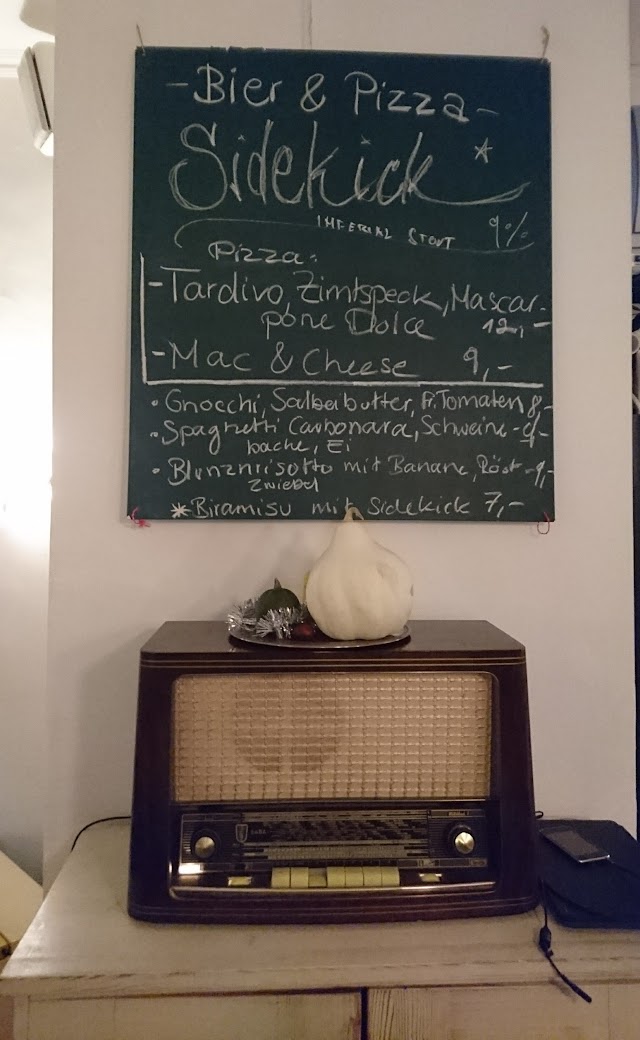 -Bier & Pizza-
Sidekick *
IMPERIAL STOUT 9%
Pizza:
-Tardivo, Zimtspeck, Mascar-
pone Dolce 12,-
-Mac & Cheese 9,-
• Gnocchi, Salbeibutter, Fr. Tomaten 8,-
• Spaghetti Carbonara, Schweine- 9,-
backe, Ei
• Blunznrisotto mit Banane, Röst- 9,-
zwiebel
* Biramisu mit Sidekick 7,-
SABA